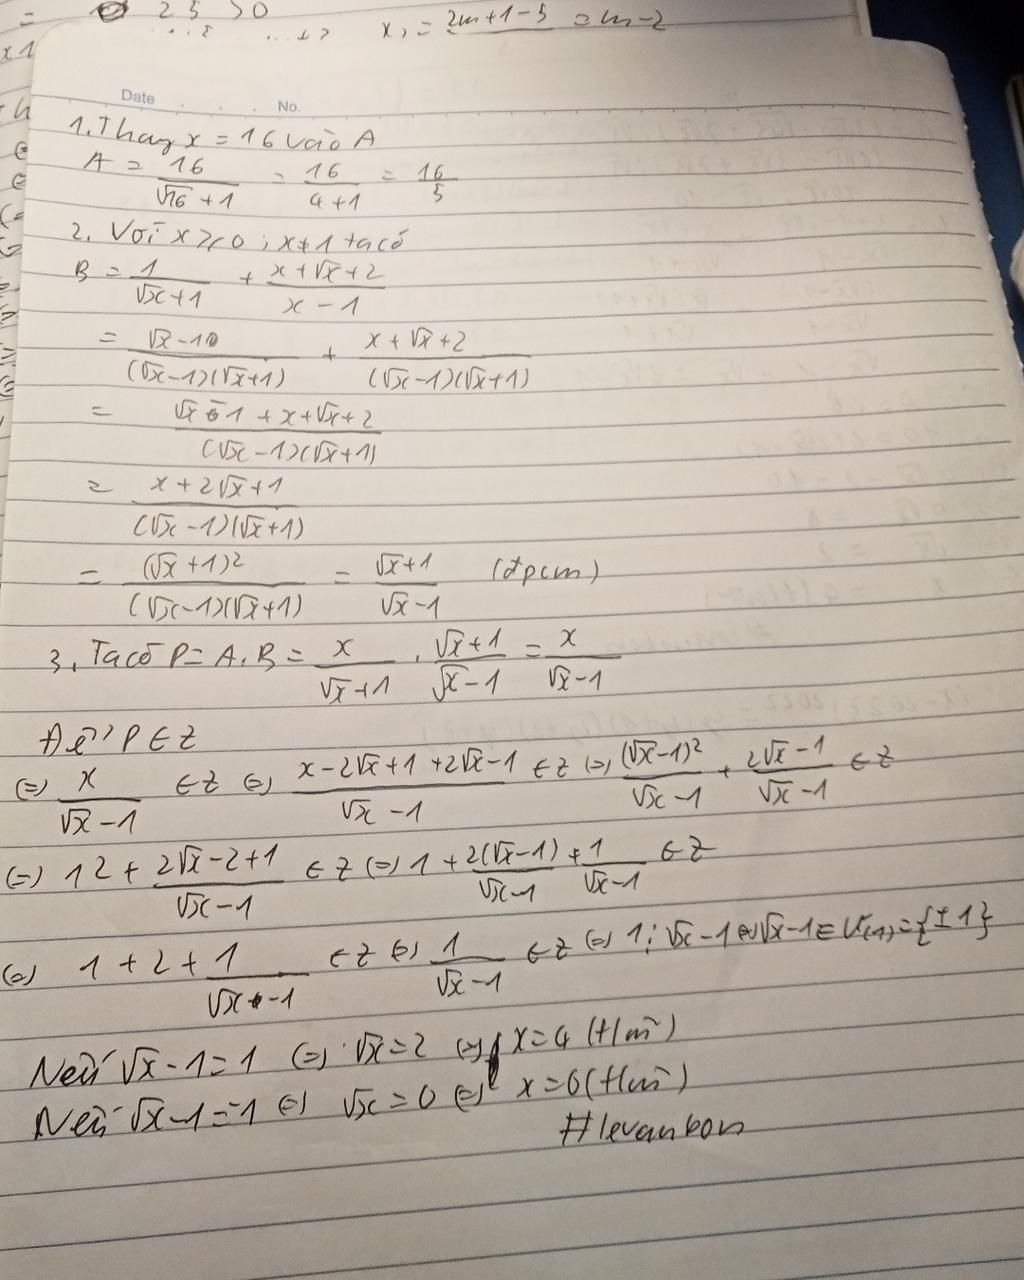 = 25 > 0
x₁ = (2m+1-5)/ = m-2
x1
Date No.
1. Thay x = 16 vào A
A = 16/(√16 + 1) = 16/(4+1) = 16/5
2. Với x ≥ 0 ; x ≠ 1 ta có
B = 1/(√x+1) + (x+√x+2)/(x-1)
= (√x-1)/((√x-1)(√x+1)) + (x+√x+2)/((√x-1)(√x+1))
= (√x-1+x+√x+2)/((√x-1)(√x+1))
= (x+2√x+1)/((√x-1)(√x+1))
= (√x+1)²/((√x-1)(√x+1)) = (√x+1)/(√x-1) (đpcm)
3, Ta có P = A.B = x/(√x+1) . (√x+1)/(√x-1) = x/(√x-1)
Để P ∈ Z
(=) x/(√x-1) ∈ Z (=) (x-2√x+1+2√x-1)/(√x-1) ∈ Z (=) (√x-1)²/(√x-1) + (2√x-1)/(√x-1) ∈ Z
(=) 12 + (2√x-2+1)/(√x-1) ∈ Z (=) 1 + 2(√x-1)/(√x-1) + 1/(√x-1) ∈ Z
(=) 1 + 2 + 1/(√x-1) ∈ Z (=) 1/(√x-1) ∈ Z (=) 1 ⋮ √x-1 (=) √x-1 ∈ Ư(1) = {±1}
Nếu √x-1 = 1 (=) √x = 2 (=) x = 4 (t/m)
Nếu √x-1 = -1 (=) √x = 0 (=) x = 0 (t/m)
#levanbon